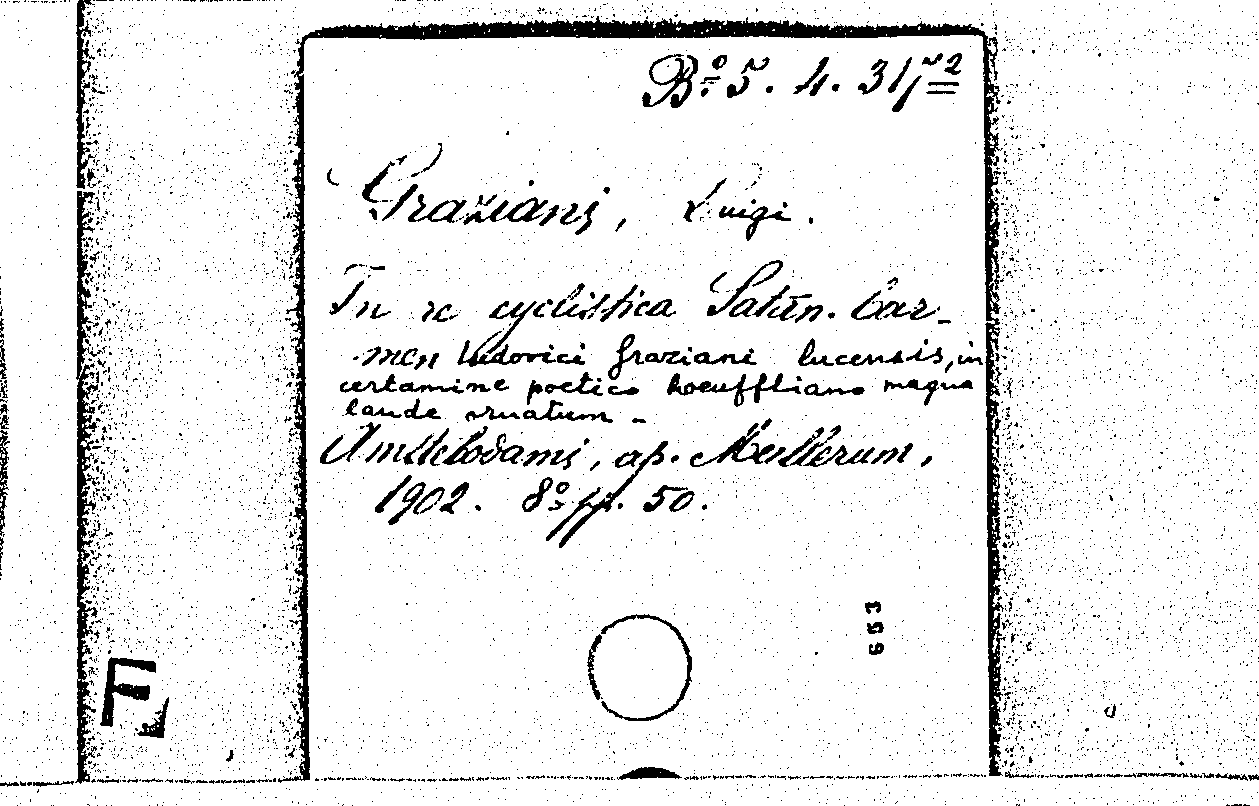 Bº 5. 4. 31/ⁿ²
Graziani, Luigi.
In re cyclistica Satān. Car-
men Ludovici Graziani lucensis, in
certamine poetico hoeufftiano magna
laude ornatum -
Amstelodami, ap. Mullerum,
1902. 8º pp. 50.
653
F